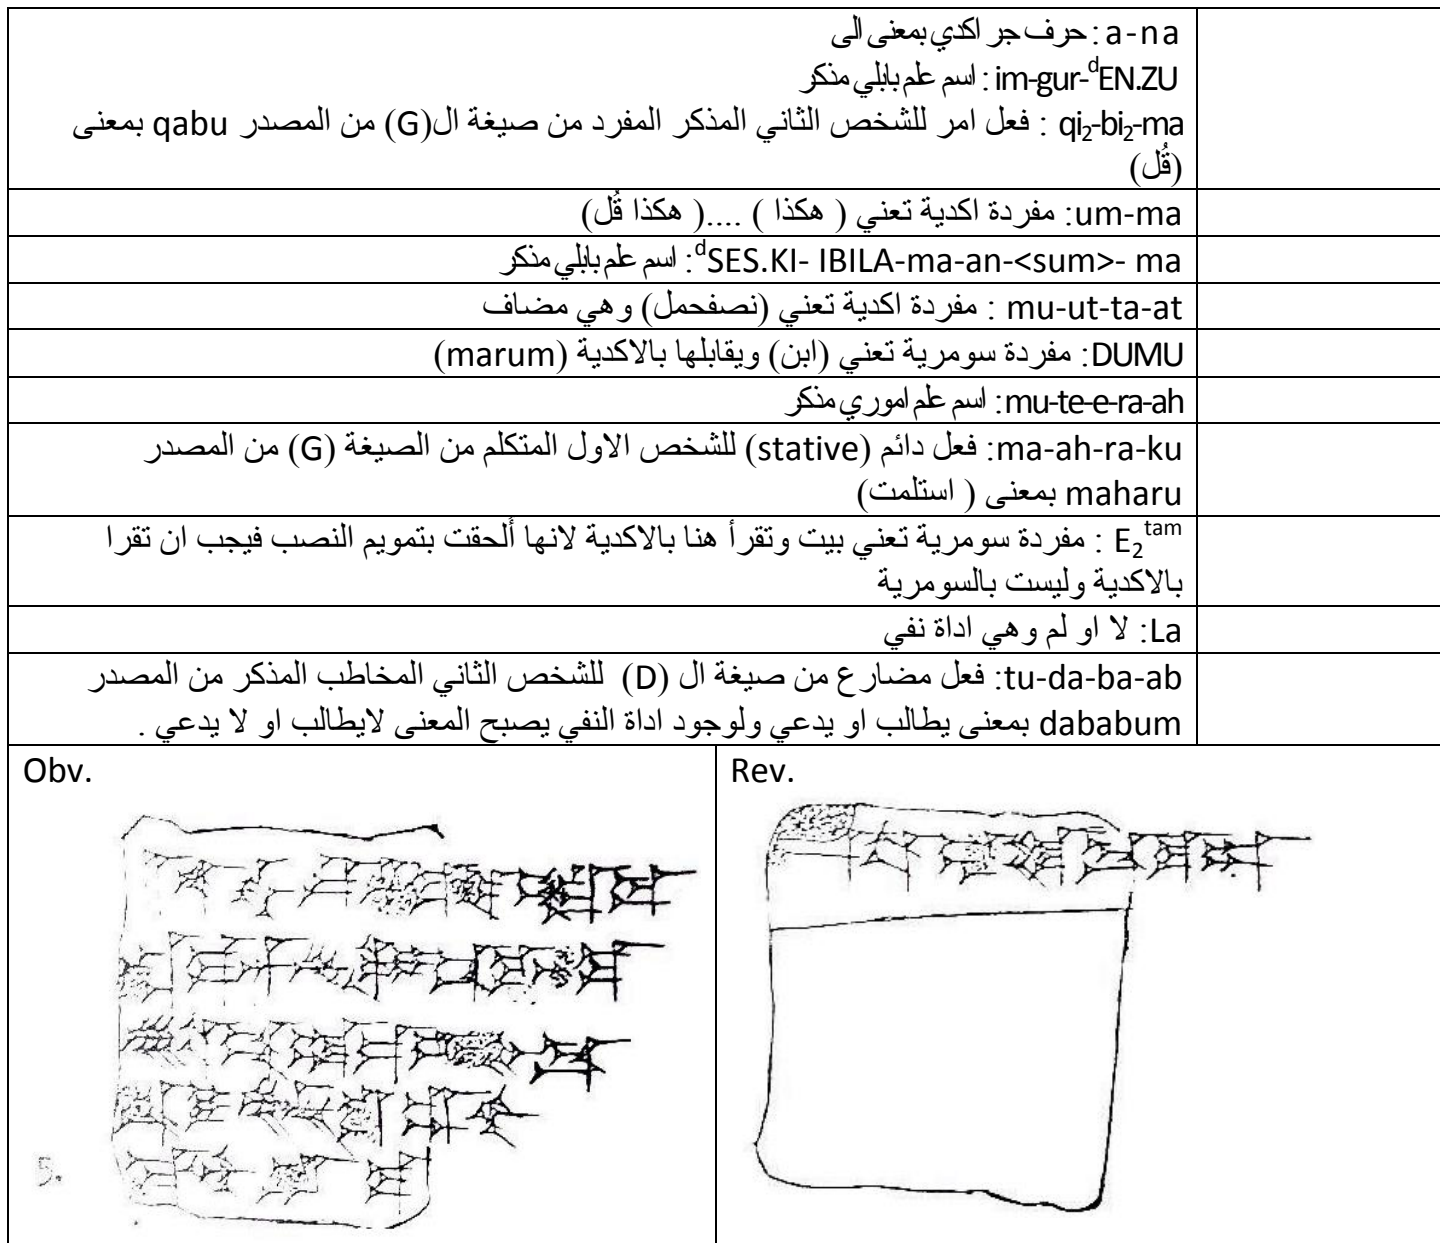 a-na: حرف جر اكدي بمعنى الى
im-gur-ᵈEN.ZU : اسم علم بابلي مذكر
qi₂-bi₂-ma : فعل امر للشخص الثاني المذكر المفرد من صيغة ال(G) من المصدر qabu بمعنى
(قُل)
um-ma: مفردة اكدية تعني ( هكذا ) ....( هكذا قُل)
ᵈSES.KI- IBILA-ma-an-<sum>- ma: اسم علم بابلي مذكر
mu-ut-ta-at : مفردة اكدية تعني (نصفحمل) وهي مضاف
DUMU: مفردة سومرية تعني (ابن) ويقابلها بالاكدية (marum)
mu-te-e-ra-ah: اسم علم اموري مذكر
ma-ah-ra-ku: فعل دائم (stative) للشخص الاول المتكلم من الصيغة (G) من المصدر
maharu بمعنى ( استلمت)
E₂ᵗᵃᵐ : مفردة سومرية تعني بيت وتقرأ هنا بالاكدية لانها ألحقت بتمويم النصب فيجب ان تقرا
بالاكدية وليست بالسومرية
La: لا او لم وهي اداة نفي
tu-da-ba-ab: فعل مضارع من صيغة ال (D) للشخص الثاني المخاطب المذكر من المصدر
dababum بمعنى يطالب او يدعي ولوجود اداة النفي يصبح المعنى لايطالب او لا يدعي .
Obv.
Rev.
5.